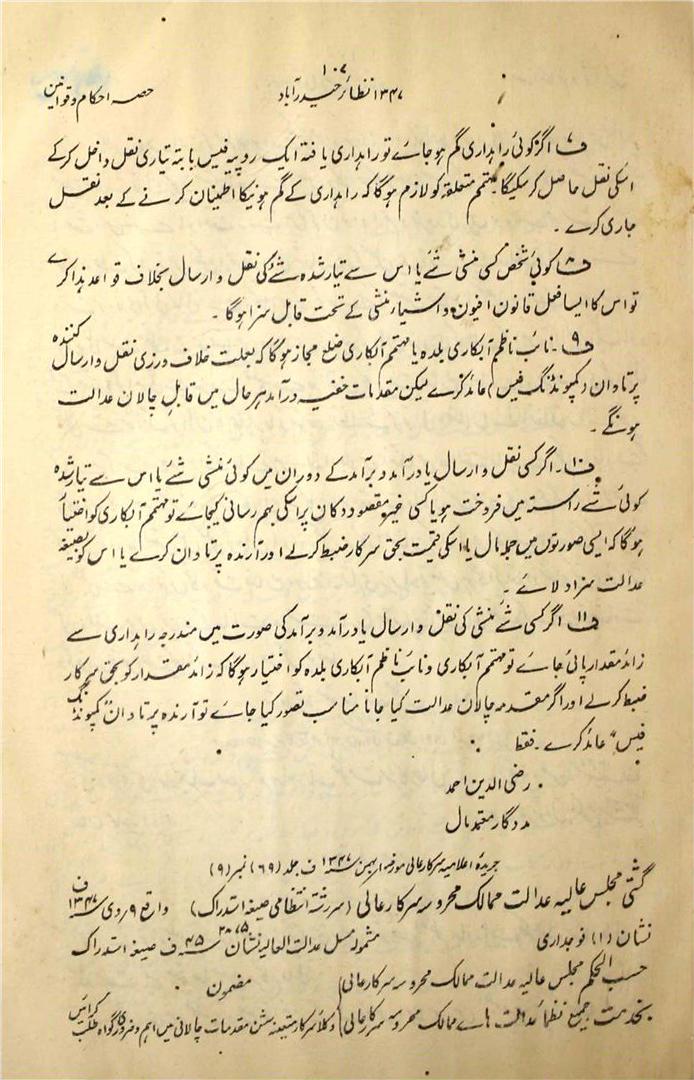 ۱۰۷
حصہ احکام و قوانین
۱۳۴۷ نظائر حیدرآباد
ف۷ اگر کوئی راہداری گم ہو جائے تو راہداری یافتہ ایک روپیہ فیس بابتہ تیاری نقل داخل کر کے
اسکی نقل حاصل کر سکیگا۔ مہتمم متعلقہ کو لازم ہو گا کہ راہداری کے گم ہونیکا اطمینان کرنے کے بعد نقل
جاری کرے ۔
ف۸ کوئی شخص کسی منشی شئے یا اس سے تیار شدہ شئے کی نقل و ارسال بخلاف قواعد ہذا کرے
تو اس کا ایسا فعل قانون افیون و اشیاء منشی کے تحت قابل سزا ہو گا ۔
ف۹۔ نائب ناظم آبکاری بلدہ یا مہتمم آبکاری ضلع مجاز ہو گا کہ بعلت خلاف ورزی نقل و ارسال کنندہ
پر تاوان (کمپونڈنگ فیس) عائد کرے لیکن مقدمات خفیہ درآمد ہر حال میں قابل چالان عدالت
ہونگے ۔
ف۱۰۔ اگر کسی نقل و ارسال یا درآمد و برآمد کے دوران میں کوئی منشی شئے یا اس سے تیار شدہ
کوئی شئے راستہ میں فروخت ہو یا کسی غیر مقصود دکان پر اسکی بہم رسانی کیجائے تو مہتمم آبکاری کو اختیار
ہو گا کہ ایسی صورتوں میں جملہ مال یا اسکی قیمت بحق سرکار ضبط کرلے اور آرندہ پر تاوان کرے یا اس کو بصیغہ
عدالت سزا دلائے ۔
ف۱۱ اگر کسی شئے منشی کی نقل و ارسال یا درآمد و برآمد کی صورت میں مندرجہ راہداری سے
زائد مقدار پائی جائے تو مہتمم آبکاری و نائب ناظم آبکاری بلدہ کو اختیار ہو گا کہ زائد مقدار کو بحق سرکار
ضبط کرلے اور اگر مقدمہ چالان عدالت کیا جانا مناسب تصور کیا جائے تو آرندہ پر تاوان "کمپونڈنگ
فیس" عائد کرے ۔ فقط
رضی الدین احمد
مددگار معتمد مال
جریدہ اعلامیہ سرکار عالی مورخہ ۱ بہمن ۱۳۴۷ ف جلد (۶۹) نمبر (۹)
گشتی مجلس عالیہ عدالت ممالک محروسہ سرکار عالی (سررشتہ انتظامی صیغہ استدراک) واقع ۹ دی ۱۳۴۷ ف
نشان (۱) فوجداری مشمولہ مسل عدالت العالیہ نشان ۴۵ ف صیغہ استدراک
حسب الحکم مجلس عالیہ عدالت ممالک محروسہ سرکار عالی مضمون
بخدمت جمیع نظماء عدالت ہائے ممالک محروسہ سرکار عالی وکلاء سرکار متعینہ سشن مقدمات چالانی میں اہم و ضروری گواہ طلب کرائیں